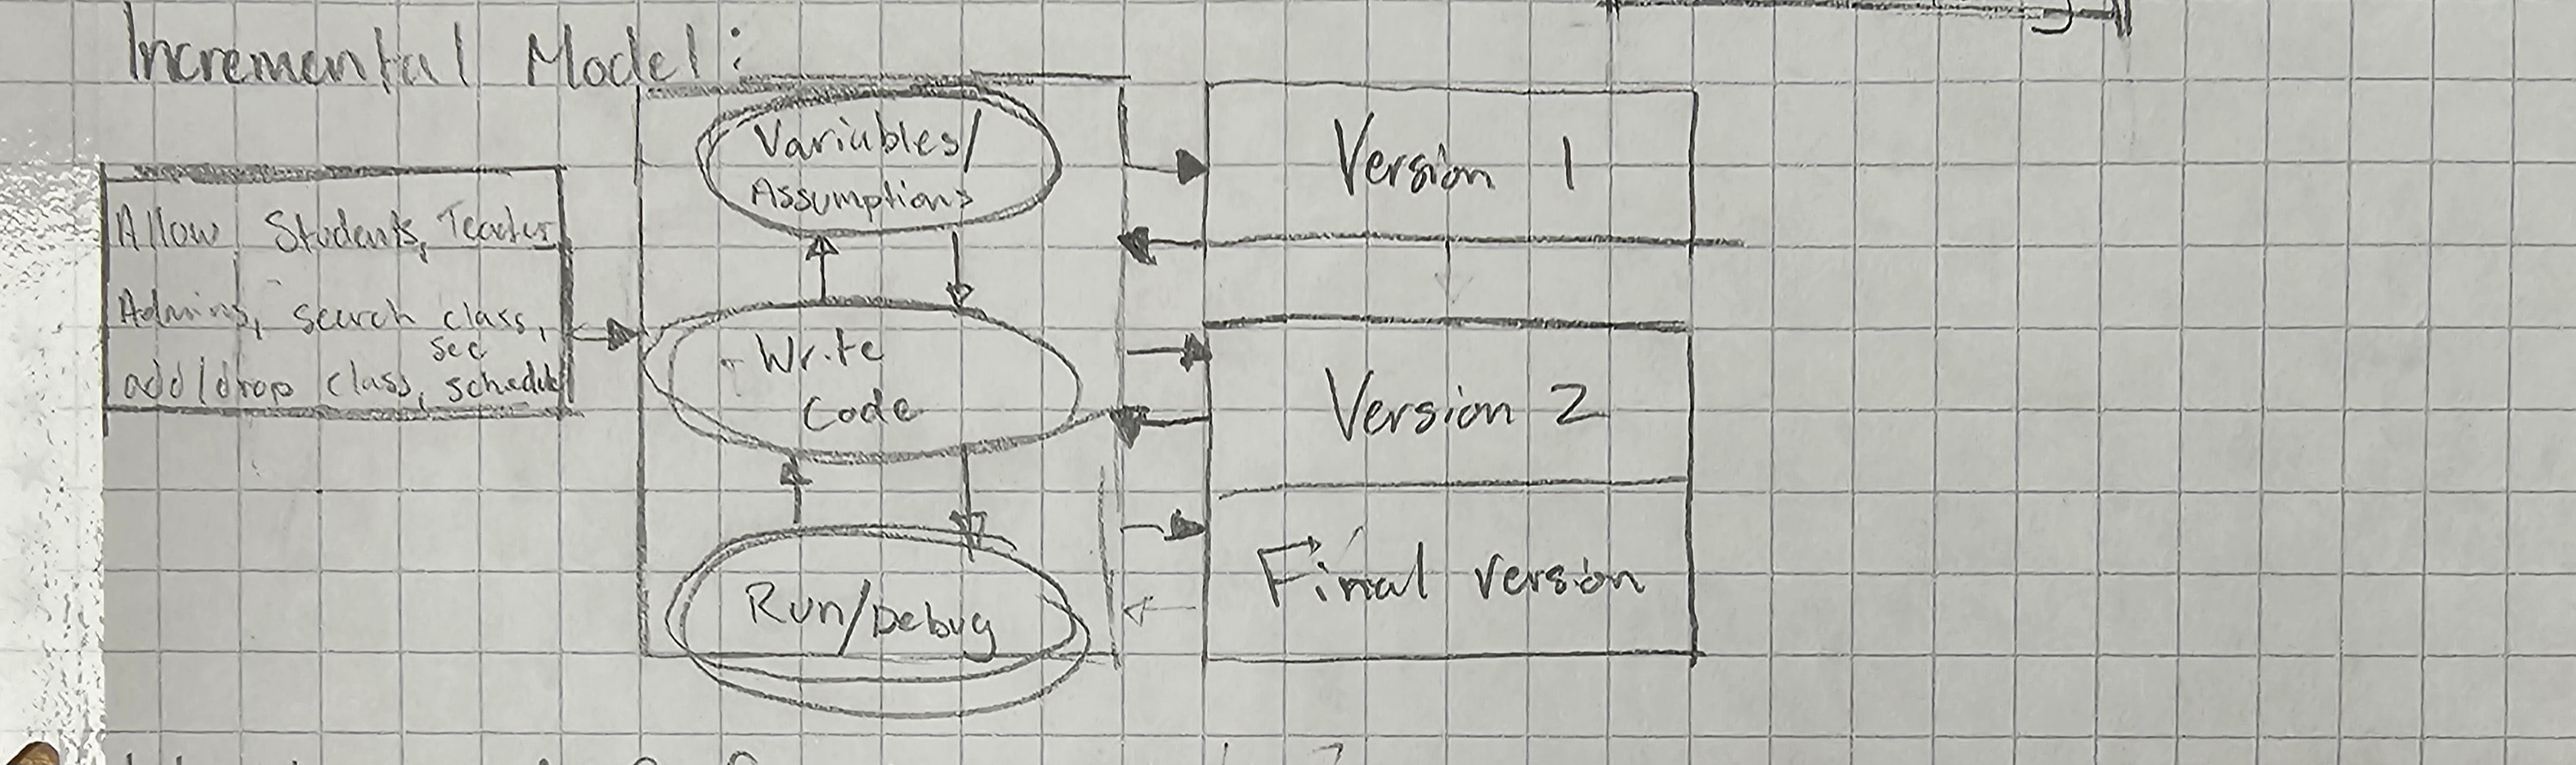 Incremental Model:
Allow Students, Teacher
Admins, search class,
see
add/drop class, schedule
Variables/
Assumptions
Write
Code
Run/Debug
Version 1
Version 2
Final version